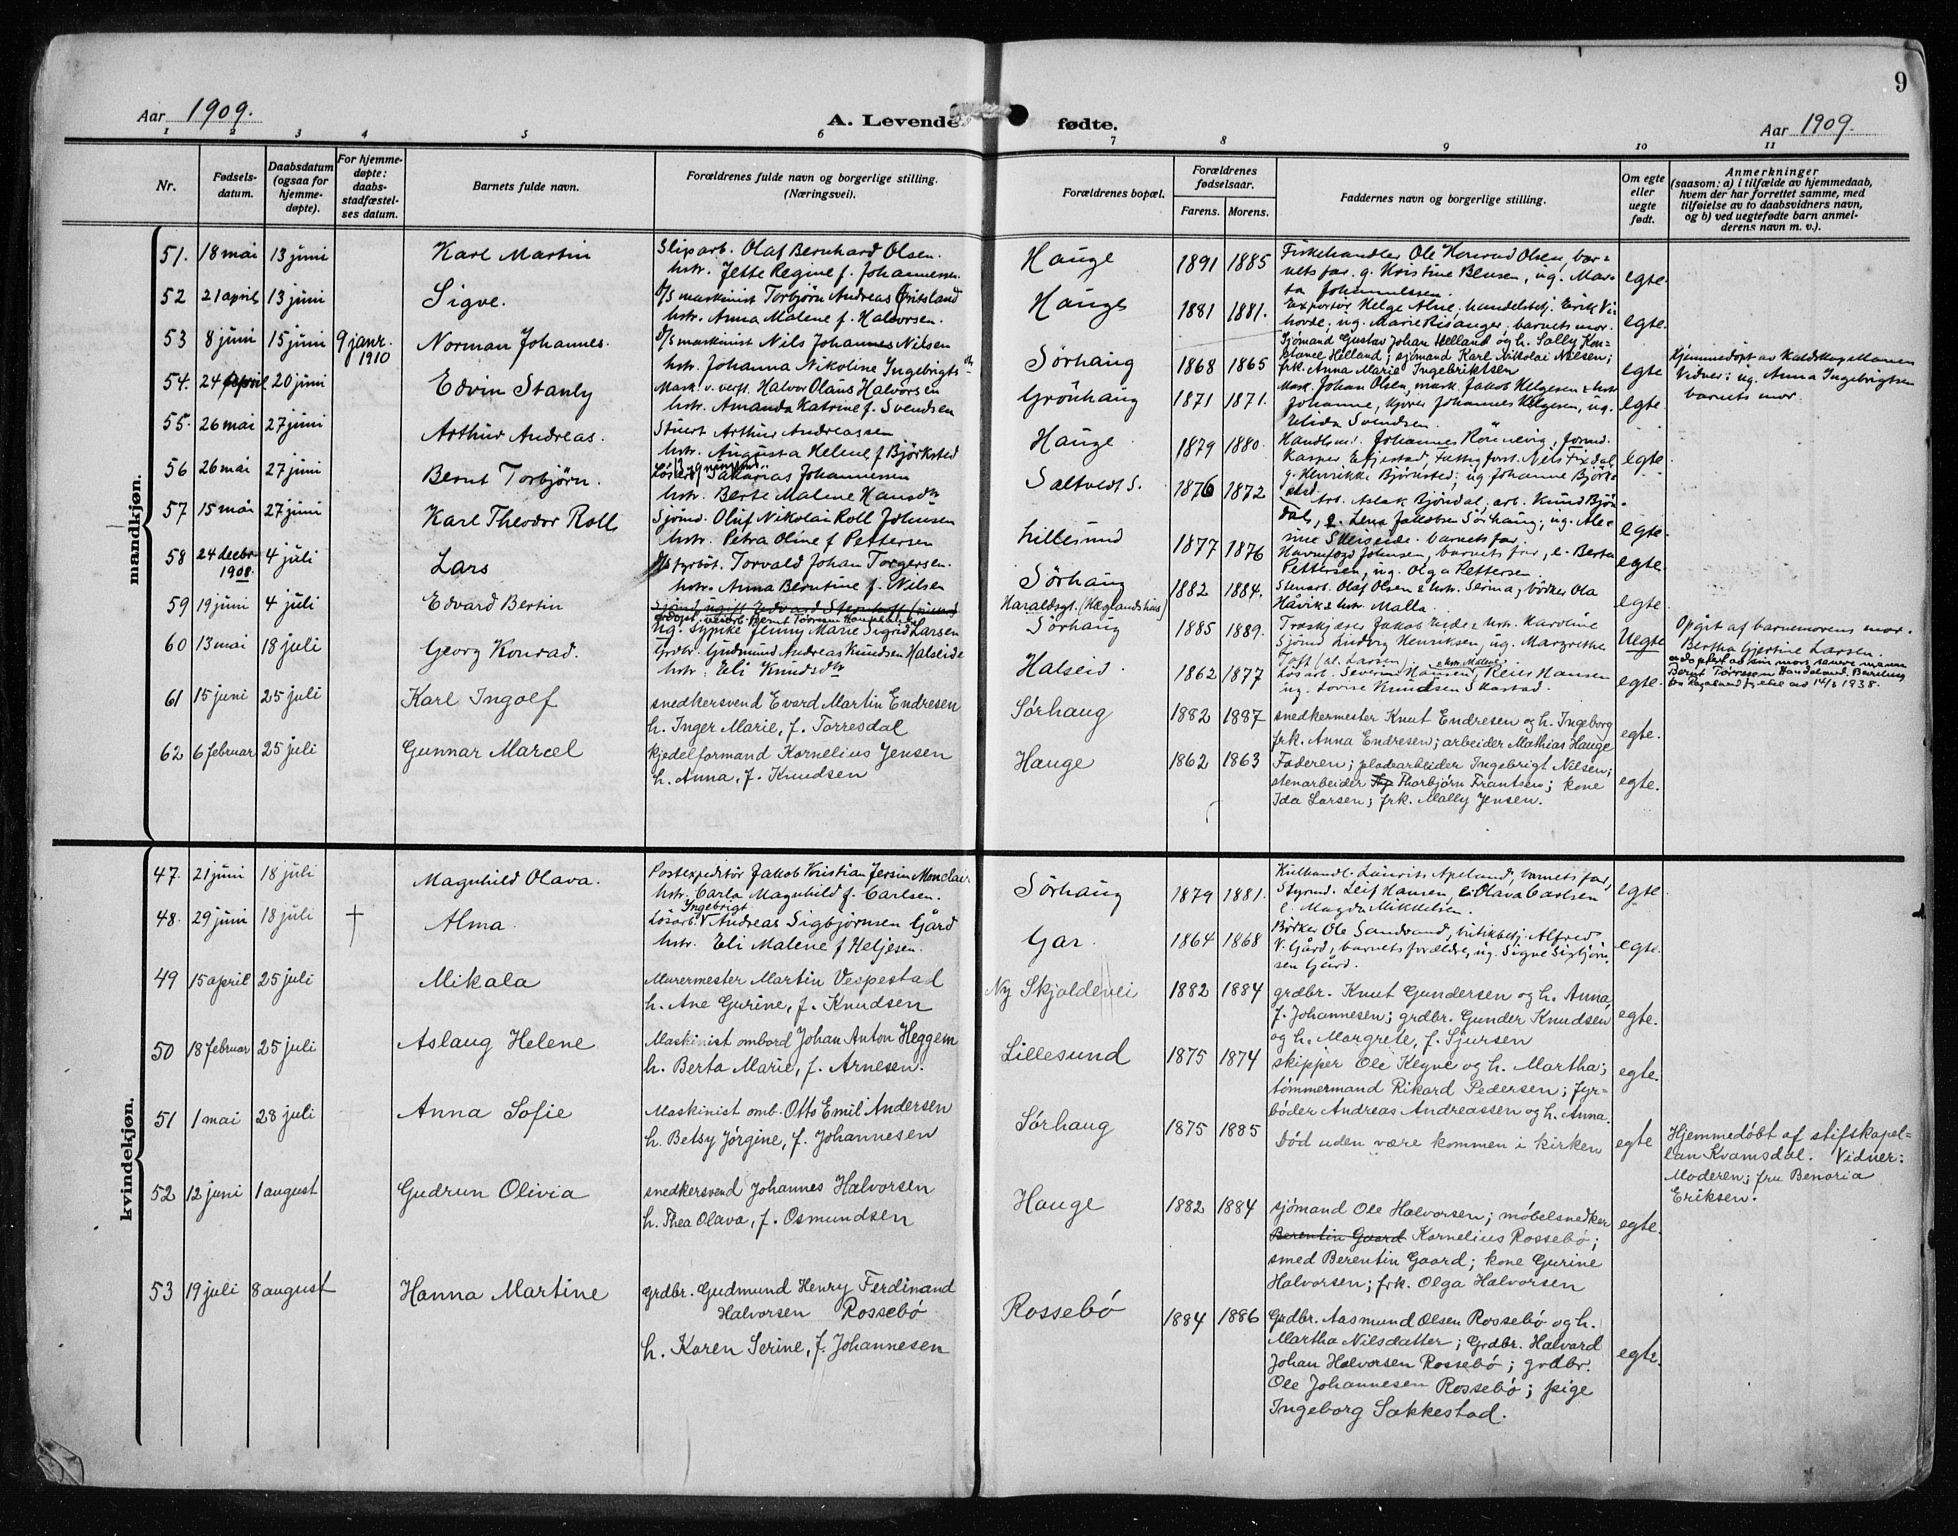 9
Aar 1909.
A. Levende fødte.
Aar 1909.
1 2 3 4 5 6 7 8 9 10 11
Nr.
Fødsels-
datum.
Daabsdatum
(ogsaa for
hjemme-
døpte).
For hjemme-
døpte:
daabs-
stadfæstel-
ses datum.
Barnets fulde navn.
Forældrenes fulde navn og borgerlige stilling.
(Næringsvei).
Forældrenes bopæl.
Forældrenes
fødselsaar.
Farens. Morens.
Faddernes navn og borgerlige stilling.
Om egte
eller
uegte
født.
Anmerkninger
(saasom: a) i tilfælde av hjemmedaab,
hvem der har forrettet samme, med
tilføielse av to daabsvidners navn,
og b) ved uegtefødte barn anmel-
derens navn m. v.).
mandkjøn.
51. 18 mai 13 juni Karl Martin
Sliparb. Olaf Bernhard Olsen.
hstr. Jette Regine f. Johannesen.
Hauge 1891 1885
Fiskehandler Ole Konrad Olsen, bar-
nets far, g. Kristine Bensen, ug. Mar-
ta Johannessen.
egte.
52 21 april 13 juni Sigve.
D/S maskinist Torbjørn Andreas Gritsland
hstr. Anna Malene f. Halvorsen.
Hauge 1881 1881.
Exportør Helge Alne, handelsbtj. Erik Vi-
hovde, ug. Marie Risanger, barnets mor.
egte.
53 8 juni 15 juni 9 janr. 1910 Norman Johannes.
D/S maskinist Nils Johannes Nilsen
hstr. Johanna Nikoline Ingebrigtsdtr
Sørhaug 1868 1865
Sjømand Gustav Johan Helland og h. Sally Kon-
stance Helland; sjømand Karl Nikolai Nielsen;
frk. Anna Marie Ingebriktsen
egte
Hjemmedøpt av
Vidner: ug. Anna Ingebrigtsen
barnets mor.
54. 24 april 20 juni Edvin Stanly
Mask. v. verft. Halvor Olaus Halvorsen
hstr. Amanda Katrine f. Svendsen
Grønhaug 1871 1871.
Mask. Johan Olsen, mask. Jakob Helgesen & hstr
Johanne, kjører Johannes Helgesen, ug.
Elida Svendsen.
egte.
55. 26 mai 27 juni Arthur Andreas.
Stuert Arthur Andreassen
hstr. Augusta Helene f Bjørksted
Hauge 1879 1880.
Handlsmd. Johannes Rønnevig, formd.
Kasper Eftjestad, Fattigforst. Nils Fixdal
g. Henrikke Bjørksted; ug Johanne Bjørk-
sted.
egte.
56 26 mai 27 juni Bernt Torbjørn.
Løsarb. Sakarias Johannesen
hstr. Berte Malene Hansdtr
Saltveit S. 1876 1872
Arb. Aslak Bjøndal, arb. Knud Bjøn-
dal, e. Lena Jakobsen Sørhaug; ug. Ale-
barnets far.
egte.
57 15 mai 27 juni Karl Theodor Roll
Sjømd. Oluf Nikolai Roll Johnsen
hstr. Petra Oline f Pettersen
Lillesund 1877 1876
Havnefogd Johnsen, barnets far, e. Berta
Pettersen, ug. Olga Pettersen.
egte.
58 24 decbr. 1908. 4 juli Lars
D/S styrbøt. Torvald Johan Torgersen.
hstr. Anna Berntine f. Nilsen
Sørhaug 1882 1884.
Stenarb. Olaf Olsen & hstr. Serina, bødker Ola
Håvik & hstr. Malla.
egte.
59 19 juni 4 juli Edvard Bertin
Sjømd. ugift Edvard Stenhoff
Ug. sypike Jenny Marie Sigrid Larsen
Haraldsgt. (Hæglandshus)
Sørhaug 1885 1889.
Træskjærer Jakob Eide & hstr. Karoline
Sjømd Ludvig Henriksen, ug. Margrethe
Toft (al. Larsen)
Uegte
Opgit af barnemorens mor.
Bertha Gjertine Larsen.
adoptert av sin mors senere mann
Bernt Tørresen Handeland. Bevilling
fra Rogaland fylke av 14/2 1938.
60 13 mai 18 juli Georg Konrad.
Grdbr. Gudmund Andreas Knudsen Halseide
hstr. Eli Knudsdtr
Halseid 1862 1877
Løsarb. Severin Hansen & hstr. Malene, Reier Hansen
ug. Lovise Knudsen Skastad.
egte.
61 15 juni 25 juli Karl Ingolf
snedkersvend Evard Martin Endresen
h. Inger Marie, f. Torresdal
Sørhaug 1882 1887
snedkermester Knut Endresen og h. Ingeborg
frk. Anna Endresen; arbeider Mathias Hauge
egte.
62 6 februar 25 juli Gunnar Marcel
kjedelformand Kornelius Jensen
h. Anna, f. Knudsen
Hauge 1862 1863
Faderen; pladearbeider Ingebrigt Nilsen;
stenarbeider Thorbjørn Frantsen; kone
Ida Larsen; frk. Mally Jensen.
egte.
kvindekjøn.
47. 21 juni 18 juli Magnhild Olava.
Postexpeditør Jakob Kristian Jersin Monclair
hstr. Carla Magnhild f. Carlsen.
Sørhaug 1879 1881.
Kulhandl. Laurits Apeland, barnets far,
Styrmd. Leif Hansen, e. Olava Carlsen
e. Magda Mikkelsen.
egte.
48. 29 juni 18 juli † Alma.
Løsarb. Ingebrigt Andreas Sigbjørnsen Gård
hstr. Eli Malene f Heljesen.
Gar. 1864 1868
Bødker Ole Sandsand, butikbetj. Alfred
V. Gård, barnets forældre, ug. Signe Sigbjørn
sen Gård.
egte.
49 15 april 25 juli Mikala
Murermester Martin Vespestad
h. Ane Gurine, f. Knudsen
Ny Skjoldevei 1882 1884
grdbr. Knut Gundersen og h. Anna,
f. Johannesen; grdbr. Gunder Knudsen
og h. Margrete, f. Sjursen
egte.
50 18 februar 25 juli Aslaug Helene
Maskinist ombord Johan Anton Heggem
h. Berta Marie, f. Arnesen.
Lillesund 1875 1874
skipper Ole Keyne og h. Martha;
tømmermand Rikard Pedersen; Fyr-
bøder Andreas Andreassen og h. Anna.
egte.
51 1 mai 28 juli Anna Sofie
Maskinist omb. Otto Emil Andersen
h. Betsy Jørgine, f. Johannesen
Sørhaug 1875 1885
Død uden være kommen i kirken
egte
Hjemmedøbt af stiftskapel-
lan Kvamsdal. Vidner:
Moderen; fru Benoria
Eriksen.
52 12 juni 1 august Gudrun Olivia
snedkersvend Johannes Halvorsen
h. Thea Olava, f. Osmundsen
Hauge 1882 1884
sjømand Ole Halvorsen; møbelsnedker
Berentin Gaard Kornelius Rossebø;
smed Berentin Gaard; kone Gurine
Halvorsen; frk. Olga Halvorsen
egte.
53 19 juli 8 august Hanna Martine
grdbr. Gudmund Henry Ferdinand
Halvorsen Rossebø
h. Karen Serine, f. Johannesen
Rossebø 1884 1886
Grdbr. Aasmund Olsen Rossebø og h.
Martha Nilsdatter; Grdbr. Halvard
Johan Halvorsen Rossebø; grdbr.
Ole Johannesen Rossebø; pige
Ingeborg Sakkestad.
egte.